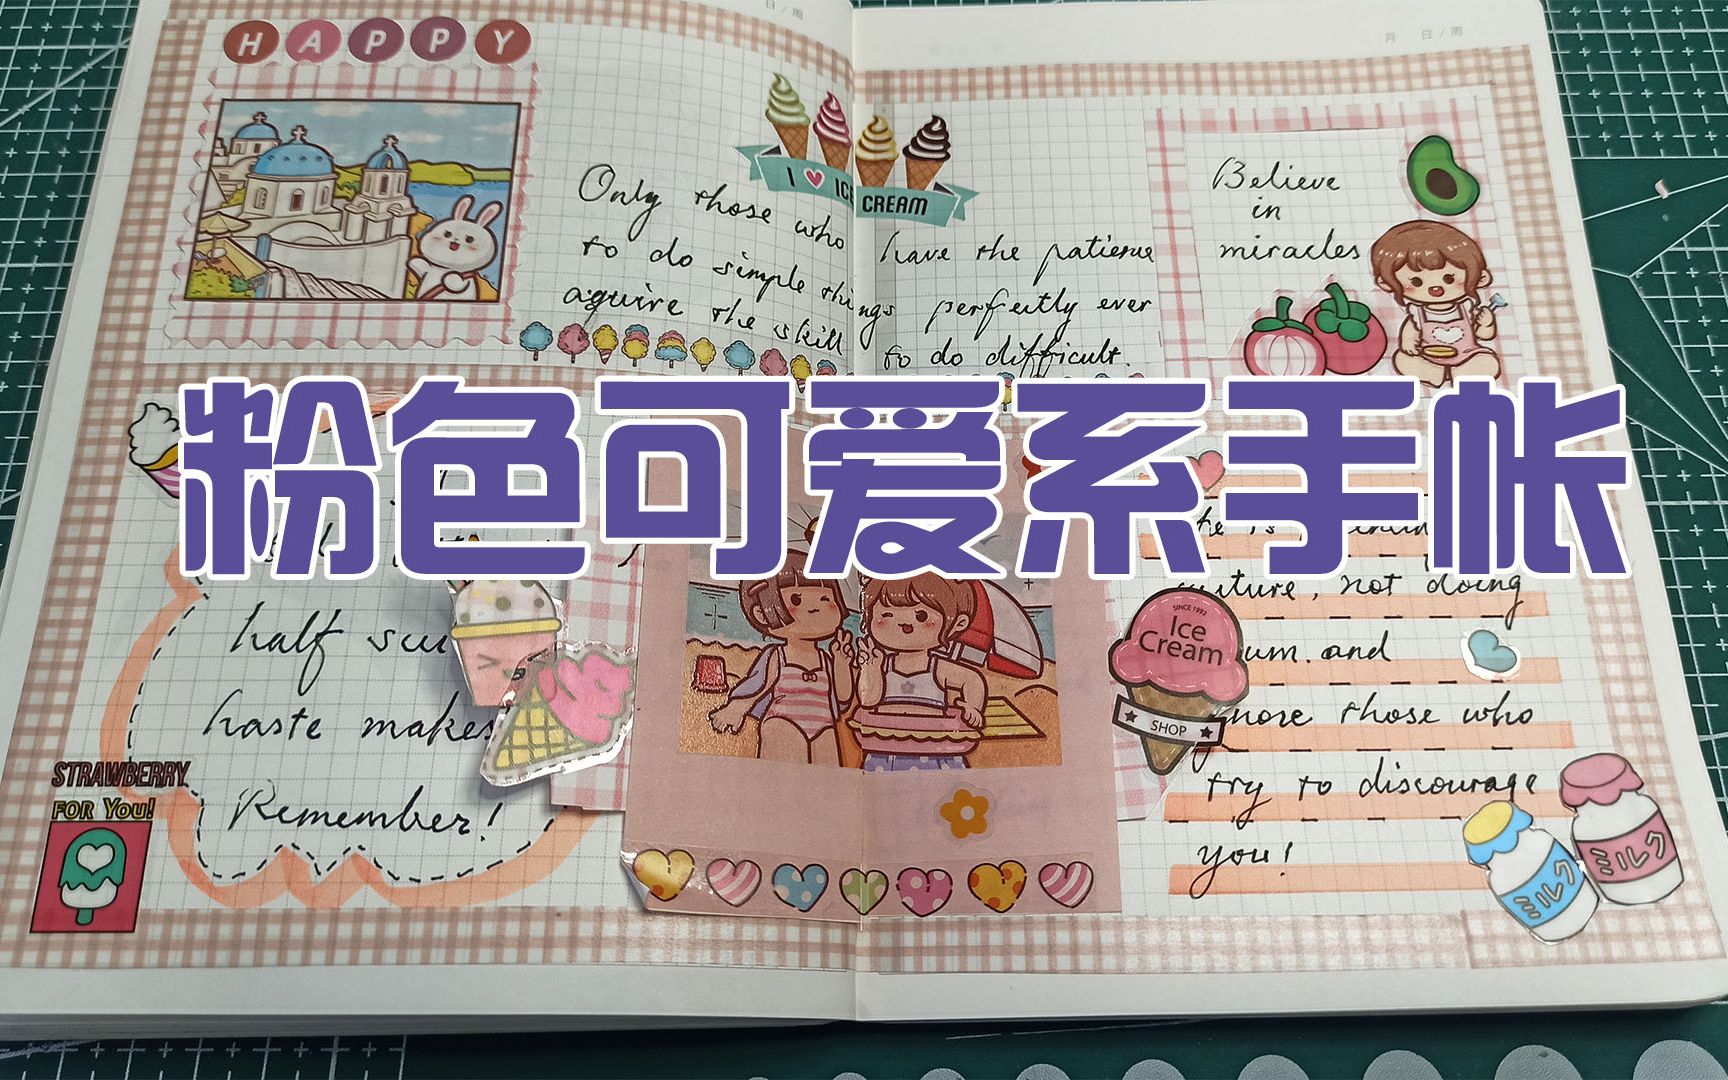 日/周
月 日/周
HAPPY
I ICE CREAM
Only those who have the patience
to do simple things perfectly ever
aquire the skill to do difficult.
Believe
in
miracles
粉色可爱系手帐
half
haste makes
Remember!
STRAWBERRY
FOR You!
SINCE 1992
Ice
Cream
SHOP
not doing
and
those who
try to discourage
you!
ミルク
ミルク